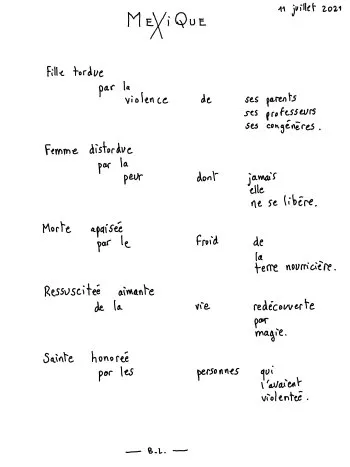 11 juillet 2021
MEXiQUE
Fille tordue
par la
violence de ses parents
ses professeurs
ses congénères.
Femme distordue
par la
peur dont jamais
elle
ne se libère.
Morte apaisée
par le froid de
la
terre nourricière.
Ressuscitée aimante
de la vie redécouverte
par
magie.
Sainte honorée
par les personnes qui
l'avaient
violentée.
— B.L. —